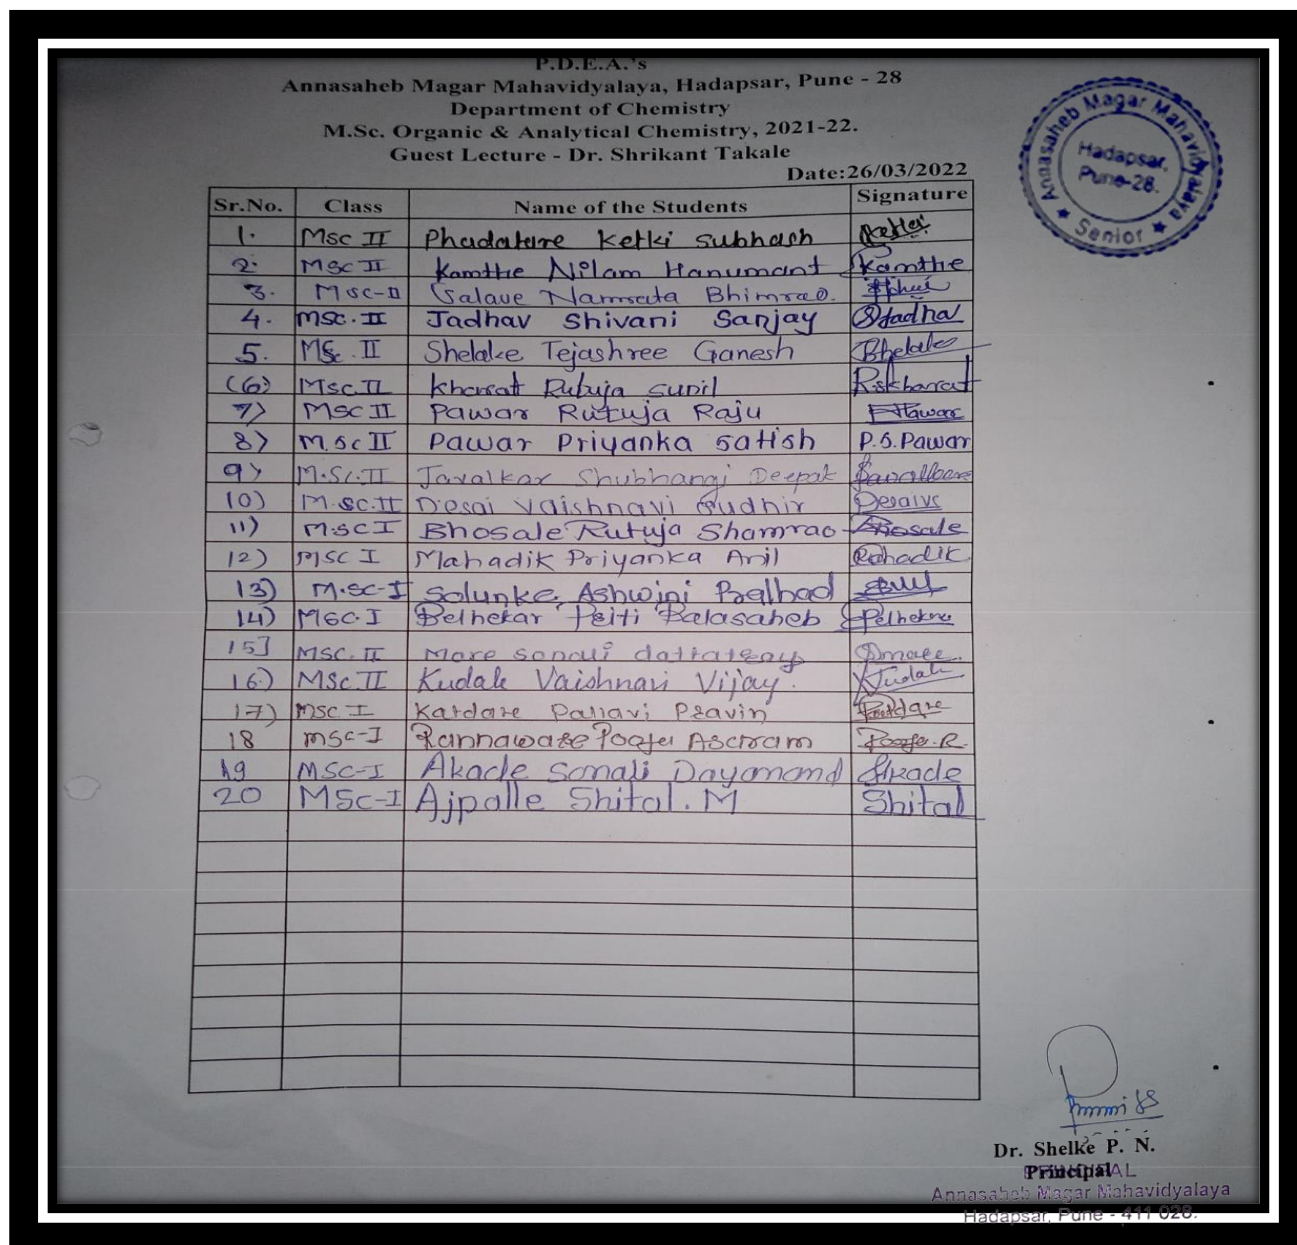 P.D.E.A.'s
Annasaheb Magar Mahavidyalaya, Hadapsar, Pune - 28
Department of Chemistry
M.Sc. Organic & Analytical Chemistry, 2021-22.
Guest Lecture - Dr. Shrikant Takale
Date:26/03/2022
Annasaheb Magar Mahavidyalaya
Hadapsar,
Pune-28.
Senior
Sr.No. Class Name of the Students Signature
1. Msc II Phadatare Ketki Subhash
2. MSc II Kamthe Nilam Hanumant Kamthe
3. MSc-II Salave Namrata Bhimrao.
4. MSC. II Jadhav Shivani Sanjay
5. MSc. II Shelake Tejashree Ganesh
(6) Msc.II Kharat Rutuja Sunil
7) MSC II Pawar Rutuja Raju
8) M.Sc II Pawar Priyanka Satish P.S.Pawar
9) M.Sc.II Javalkar Shubhangi Deepak
10) M.SC.II Desai Vaishnavi Sudhir Desaivs
11) M.SC I Bhosale Rutuja Shamrao Bhosale
12) MSC I Mahadik Priyanka Anil
13) M.SC-I Solunke Ashwini Pralhad
14) MSC.I Belhekar Priti Balasaheb
15] MSC. II More sonali dattatray
16) MSc.II Kudale Vaishnavi Vijay.
17) MSC I Kardare Pallavi Pravin
18 MSC-I Rannaware Pooja Ascram Pooja.R.
19 MSC-I Akade Sonali Dayanand Akade
20 MSc-I Ajpalle Shital. M Shital
Dr. Shelke P. N.
Principal
PRINCIPAL
Annasaheb Magar Mahavidyalaya
Hadapsar, Pune - 411 028.